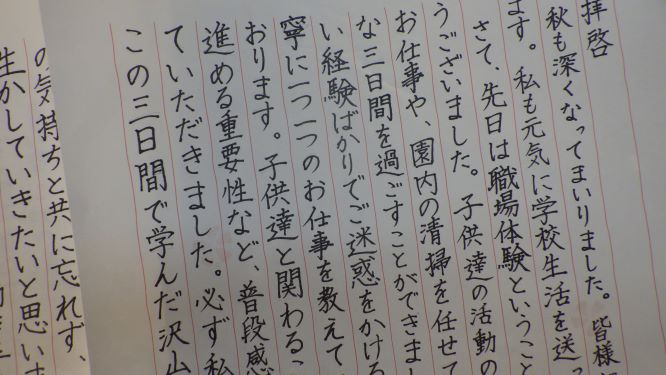 拝啓
秋も深くなってまいりました。皆様
ます。私も元気に学校生活を送っ
さて、先日は職場体験ということ
うございました。子供達の活動の
お仕事や、園内の清掃を任せて
な三日間を過ごすことができまし
い経験ばかりでご迷惑をかける
寧に一つ一つのお仕事を教えて
おります。子供達と関わるこ
進める重要性など、普段感
ていただきました。必ず私
この三日間で学んだ沢山
の気持ちと共に忘れず、
生かしていきたいと思いま